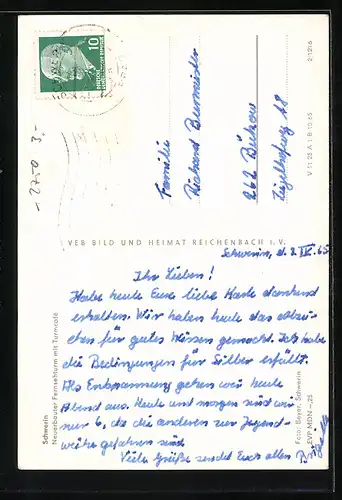 10
Familie
Richard Burmeister
262 Bützow
V 11 28 A 1 B 10.65
2/1216
VEB BILD UND HEIMAT REICHENBACH I. V.
Schwerin
Neuerbauter Fernsehturm mit Turmcafé
Foto: Beyer, Schwerin
EVP MDN -,25
- 27-0 3,-
Schwerin, d.
Ihr Lieben!
Habe heute Eure liebe Karte dankend
erhalten. Wir haben heute das
für gutes Wissen gemacht. Ich habe
die Bedingungen für Silber erfüllt.
Als Entspannung gehen wir heute
Abend aus. Heute und morgen sind wir
nur 6, da die anderen zur Jugend-
weihe gefahren sind.
Viele Grüße sendet Euch allen